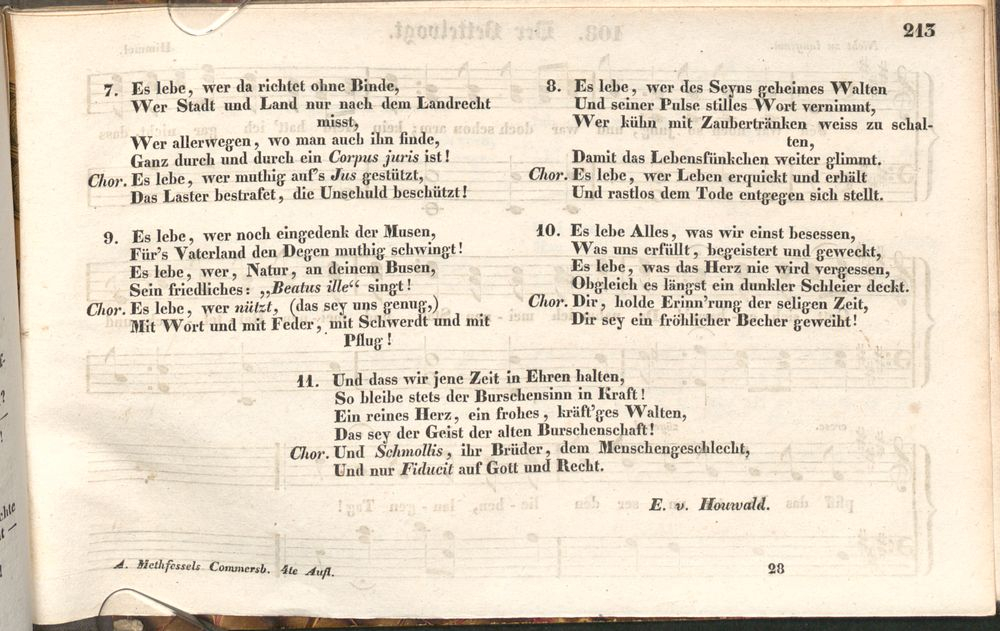 213
7. Es lebe, wer da richtet ohne Binde,
Wer Stadt und Land nur nach dem Landrecht
misst,
Wer allerwegen, wo man auch ihn finde,
Ganz durch und durch ein Corpus juris ist!
Chor. Es lebe, wer muthig auf's Jus gestützt,
Das Laster bestrafet, die Unschuld beschützt!
8. Es lebe, wer des Seyns geheimes Walten
Und seiner Pulse stilles Wort vernimmt,
Wer kühn mit Zaubertränken weiss zu schal-
ten,
Damit das Lebensfünkchen weiter glimmt.
Chor. Es lebe, wer Leben erquickt und erhält
Und rastlos dem Tode entgegen sich stellt.
9. Es lebe, wer noch eingedenk der Musen,
Für's Vaterland den Degen muthig schwingt!
Es lebe, wer, Natur, an deinem Busen,
Sein friedliches: „Beatus ille“ singt!
Chor. Es lebe, wer nützt, (das sey uns genug,)
Mit Wort und mit Feder, mit Schwerdt und mit
Pflug!
10. Es lebe Alles, was wir einst besessen,
Was uns erfüllt, begeistert und geweckt,
Es lebe, was das Herz nie wird vergessen,
Obgleich es längst ein dunkler Schleier deckt.
Chor. Dir, holde Erinn'rung der seligen Zeit,
Dir sey ein fröhlicher Becher geweiht!
11. Und dass wir jene Zeit in Ehren halten,
So bleibe stets der Burschensinn in Kraft!
Ein reines Herz, ein frohes, kräft'ges Walten,
Das sey der Geist der alten Burschenschaft!
Chor. Und Schmollis, ihr Brüder, dem Menschengeschlecht,
Und nur Fiducit auf Gott und Recht.
E. v. Houwald.
A. Methfessels Commersb. 4te Aufl.
28